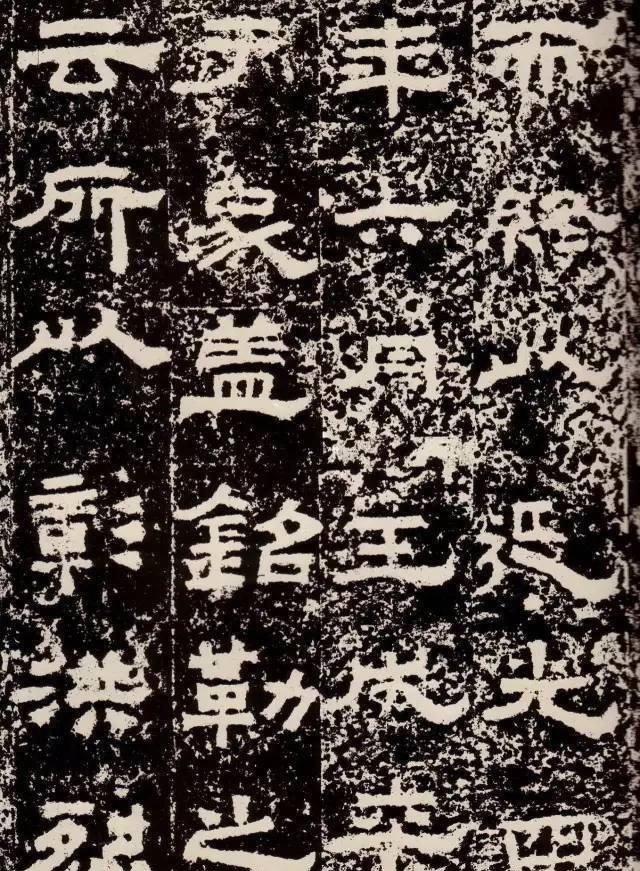 而終以延光四
年六月壬戌卒
于家蓋銘勒之
云所以彰洪烈